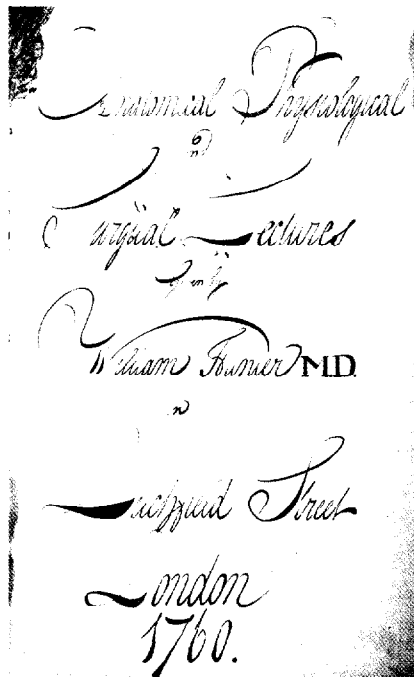 Anatomical Physiological
and
Surgical Lectures
by
William Hunter M.D.
in
Lichfield Street
London
1760.